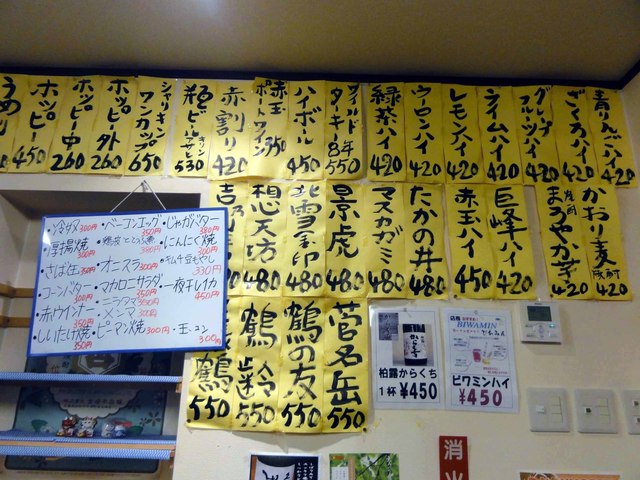 青りんごハイ 420
ざくろハイ 420
グレープフルーツハイ 420
ライムハイ 420
レモンハイ 420
ウーロンハイ 420
緑茶ハイ 420
ワイルドターキー8年 550
ハイボール 450
赤玉ポートワイン 350
赤割り 420
瓶ビール 530
シャリキンワンカップ 650
ホッピー外 260
ホッピー中 260
ホッピー 450
かおり麦 420
まろやか芋 420
巨峰ハイ 420
赤玉ハイ 450
たかの井 480
マスカガミ 480
景虎 480
北雪 480
想天坊 480
菅名岳 550
鶴の友 550
鶴齢 550
鶴 550
・冷奴 300円
・厚揚焼 300円
・さば缶 350円
・コーンバター 300円
・赤ウインナー 350円
・しいたけ焼 350円
・ベーコンエッグ 350円
・オニスラ 300円
・マカロニサラダ 350円
・ニラタマ 350円
・メンマ 300円
・ピーマン焼 300円
・じゃがバター 380円
・にんにく焼 300円
330円
・一夜干しイカ 450円
・玉コン 300円
柏露からくち
1杯 ¥450
BIWAMIN
ビワミンハイ
¥450
消火